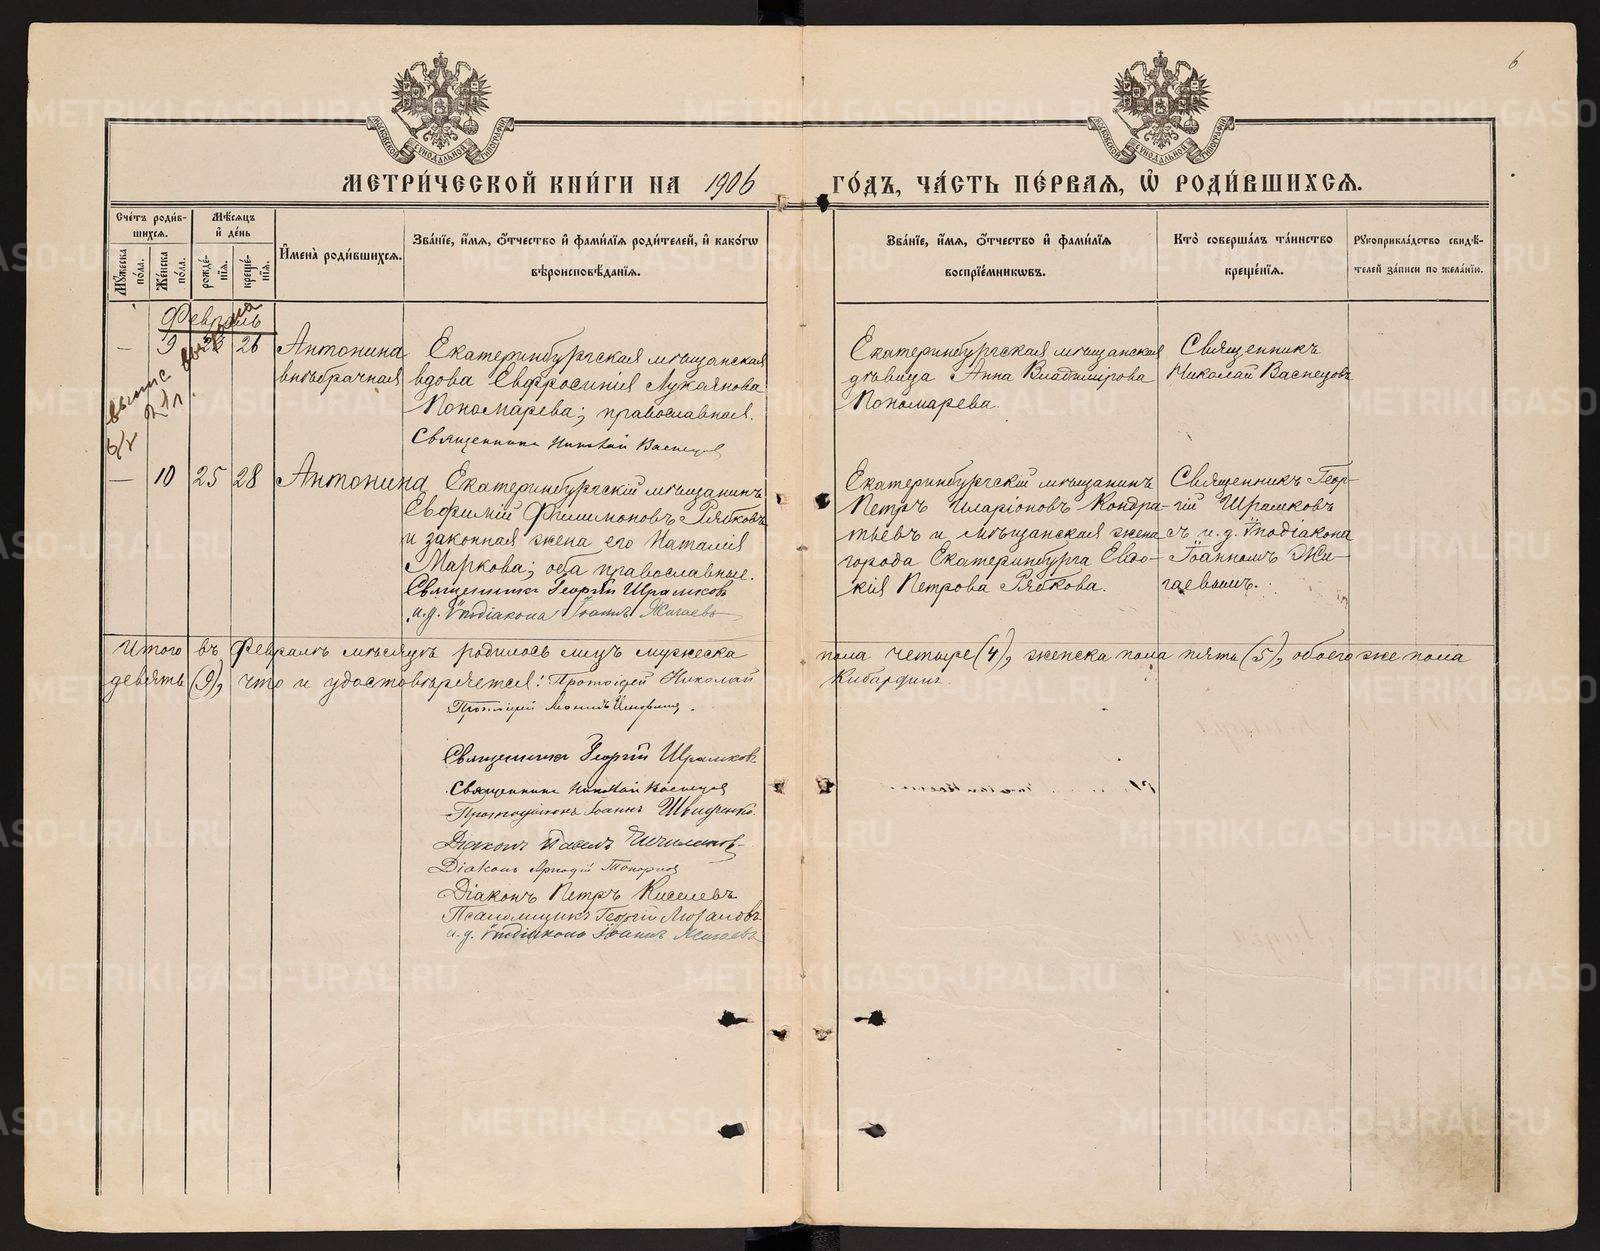 6
МЕТРИ́ЧЕСКОЙ КНИ́ГИ НА 1906 ГО́ДЪ, ЧА́СТЬ ПЕ́РВАЯ, Ѡ҆ РОДИ́ВШИХСЯ.
МОСКОВСКОЙ СѴНОДАЛЬНОЙ ТИПОГРАФІИ
МОСКОВСКОЙ СѴНОДАЛЬНОЙ ТИПОГРАФІИ
Сче́тъ роди́в-
шихся.
Мѣ́сяцъ
и҆ де́нь
Му́жеска
по́ла.
Же́нска
по́ла.
рожде́-
нія.
креще́-
нія.
И҆мена̀ роди́вшихся.
Зва́нїе, и҆́мя, ѻ҆́тчество и҆ фами́лїя роди́телей, и҆ како́гѡ
вѣроисповѣ́данїя.
Зва́нїе, и҆́мя, ѻ҆́тчество и҆ фами́лїя
воспрїе́мникѡвъ.
Кто̀ соверша́лъ та́инство
креще́нїя.
Рꙋкоприкла́дство свидѣ́-
телей за́писи по жела́нїю.
Февраль
— 9 26 Антонина
внѣбрачная
Екатеринбургская мѣщанская
вдова Евфросинія Лукоянова
Пономарева; православная.
Священникъ Николай Васнецов
Екатеринбургская мѣщанская
дѣвица Анна Владимірова
Пономарева.
Священникъ
Николай Васнецовъ
— 10 25 28 Антонина
Екатеринбургскій мѣщанинъ
Евфимій Филимоновъ Рябковъ
и законная жена его Наталія
Маркова; оба православные.
Священникъ Георгій Шрамковъ
и.д. Ѵподіакона Іоаннъ Жигаевъ
Екатеринбургскій мѣщанинъ
Петръ Иларіоновъ Кондра-
тьевъ и мѣщанская жена
города Екатеринбурга Евдо-
кія Петрова Рябкова.
Священникъ Геор-
гій Шрамковъ
съ и.д. Ѵподіакона
Іоанномъ Жи-
гаевымъ.
Итого въ Февралѣ мѣсяцѣ родилось лицъ мужеска пола четыре (4), женска пола пять (5), обоего же пола
девять (9), что и удостовѣряется: Протоіерей Николай Кибардинъ
Священникъ Георгій Шрамковъ
Священникъ Николай Васнецов
Протодіаконъ Іоаннъ
Діаконъ Павелъ
Діаконъ Аркадій Топорковъ
Діаконъ Петръ Киселевъ
Псаломщикъ Георгій
и.д. Ѵподіакона Іоаннъ Жигаевъ
METRIKI.GASO-URAL.RU